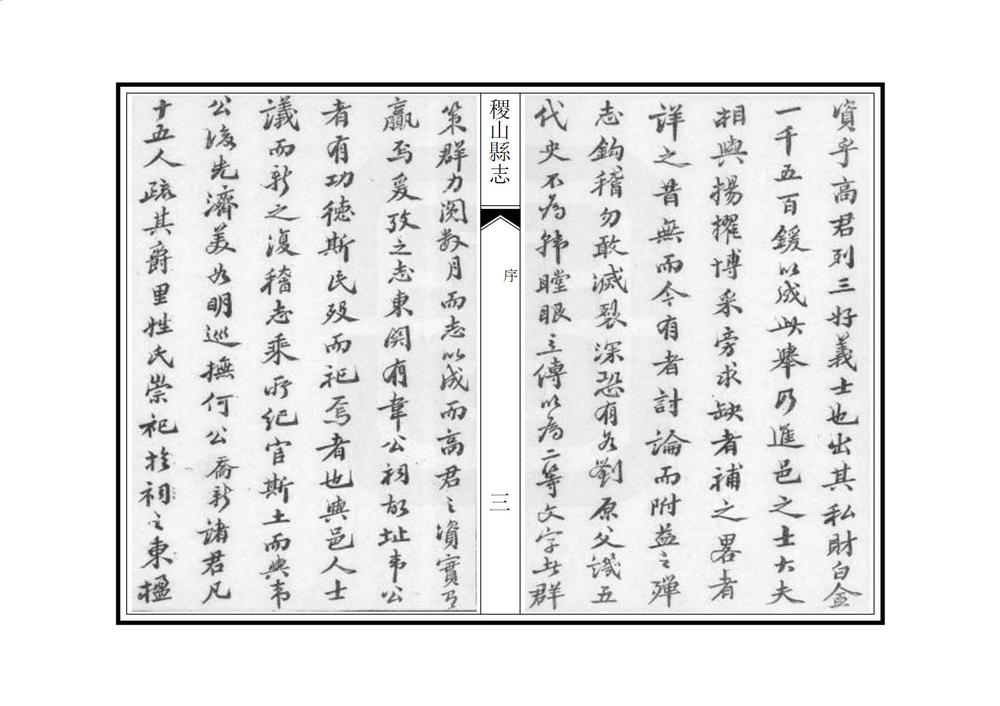 資乎高君列三好義士也出其私財白金
一千五百鍰以成此舉乃進邑之士大夫
相與揚搉博采旁求缺者補之畧者
詳之昔無而今有者討論而附益之殫
志鈎稽勿敢滅裂深恐有如劉原父譏五
代史不為韓瞠眼立傳以為二等文字者群
稷山縣志
序
三
策群力閱數月而志以成而高君之資實乃
贏焉爰攷之志東関有韋公祠故址韋公
者有功德斯民歿而祀焉者也與邑人士
議而新之復稽志乘所紀官斯土而與韋
公後先濟美如明巡撫何公喬新諸君凡
十五人疏其爵里姓氏崇祀於祠之東楹